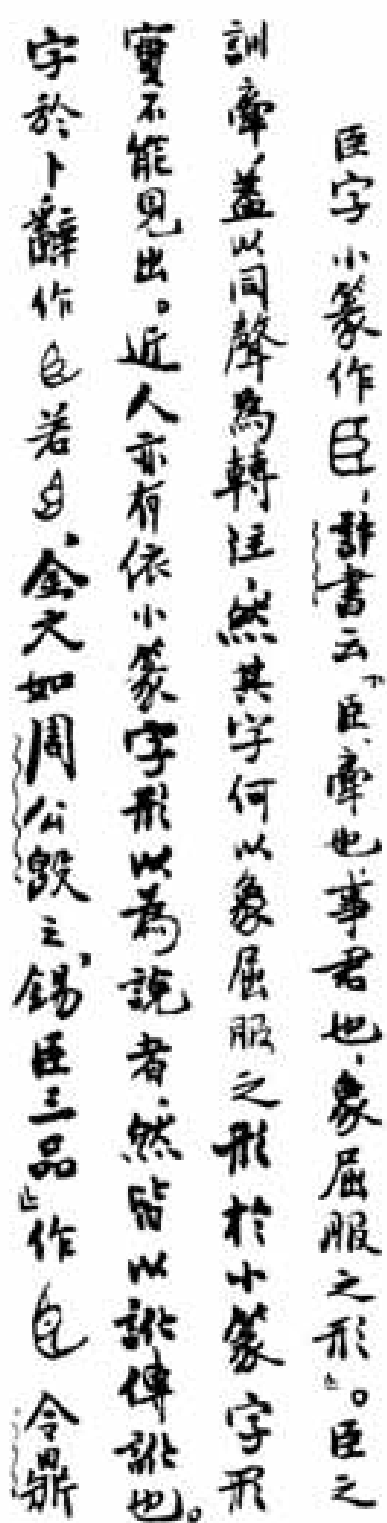 臣字小篆作臣,許書云「臣、牽也事君也,象屈服之形」。臣之
訓牽,蓋以同聲為轉注,然其字何以象屈服之形於小篆字形
實不能見出。近人亦有依小篆字形以為說者,然皆以訛傳訛也。
字於卜辭作若,金文如周公𣪘之「錫臣三品」作 令鼎